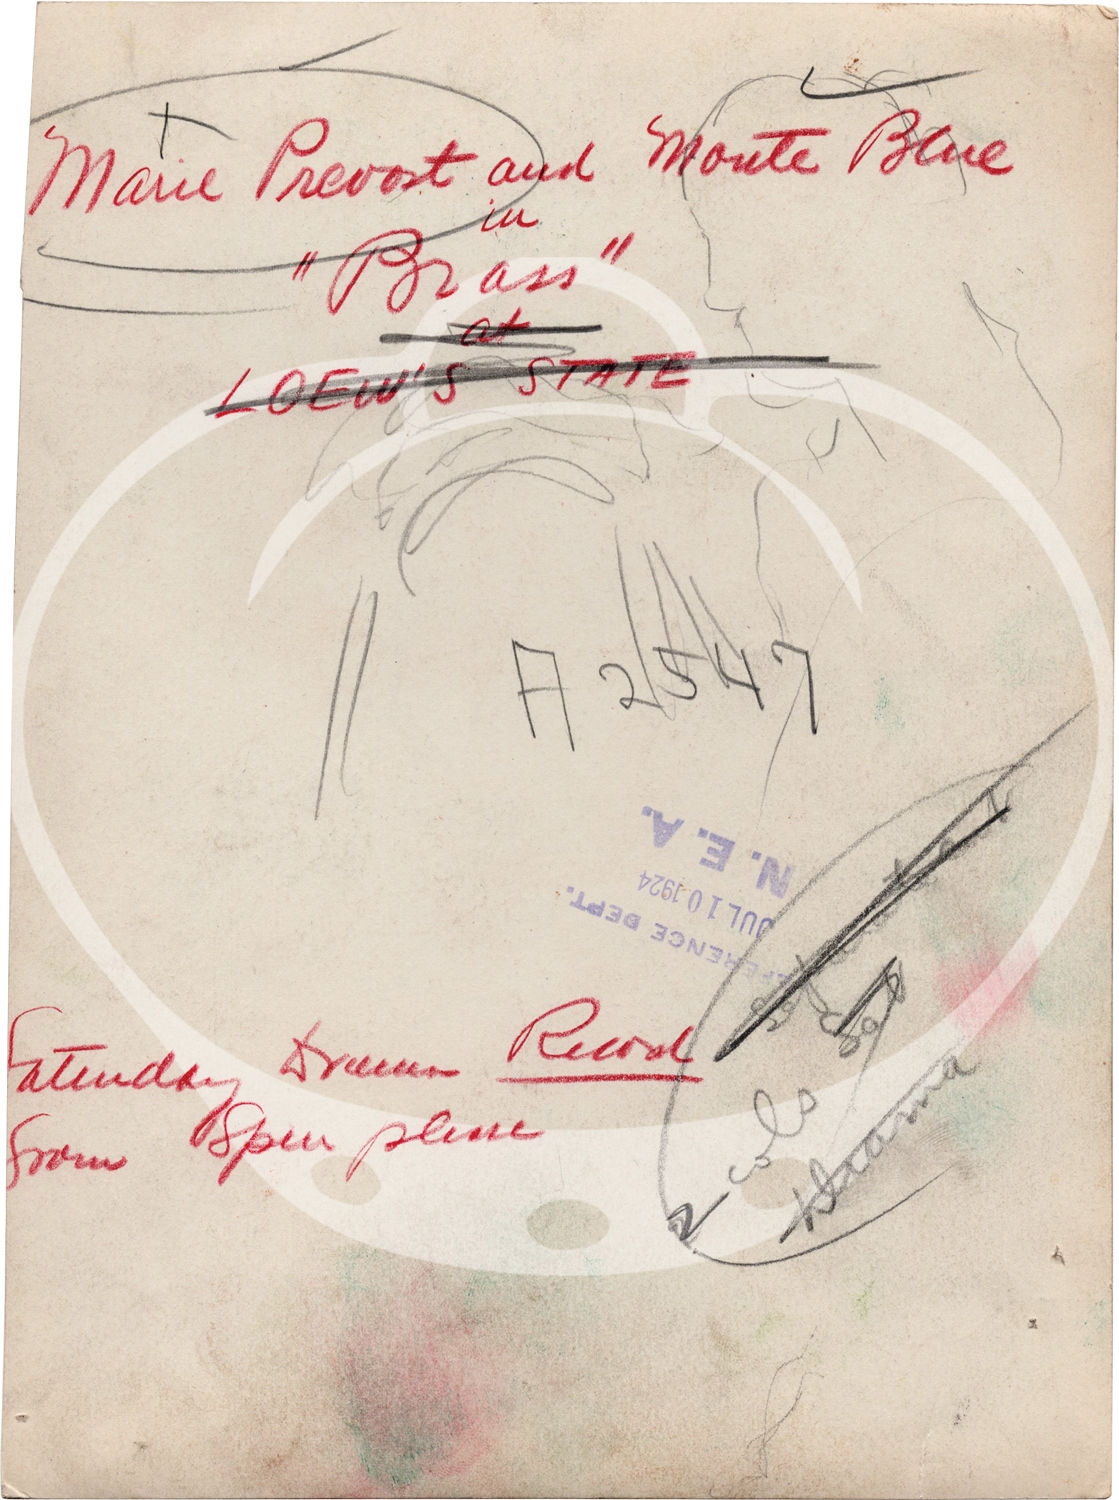 Marie Prevost and Monte Blue
in
"Brass"
at
LOEW'S STATE
A 2547
N. E. A.
JUL 10 1924
REFERENCE DEPT.
Saturday Drama Record
from Spen please
2 cols
Drama